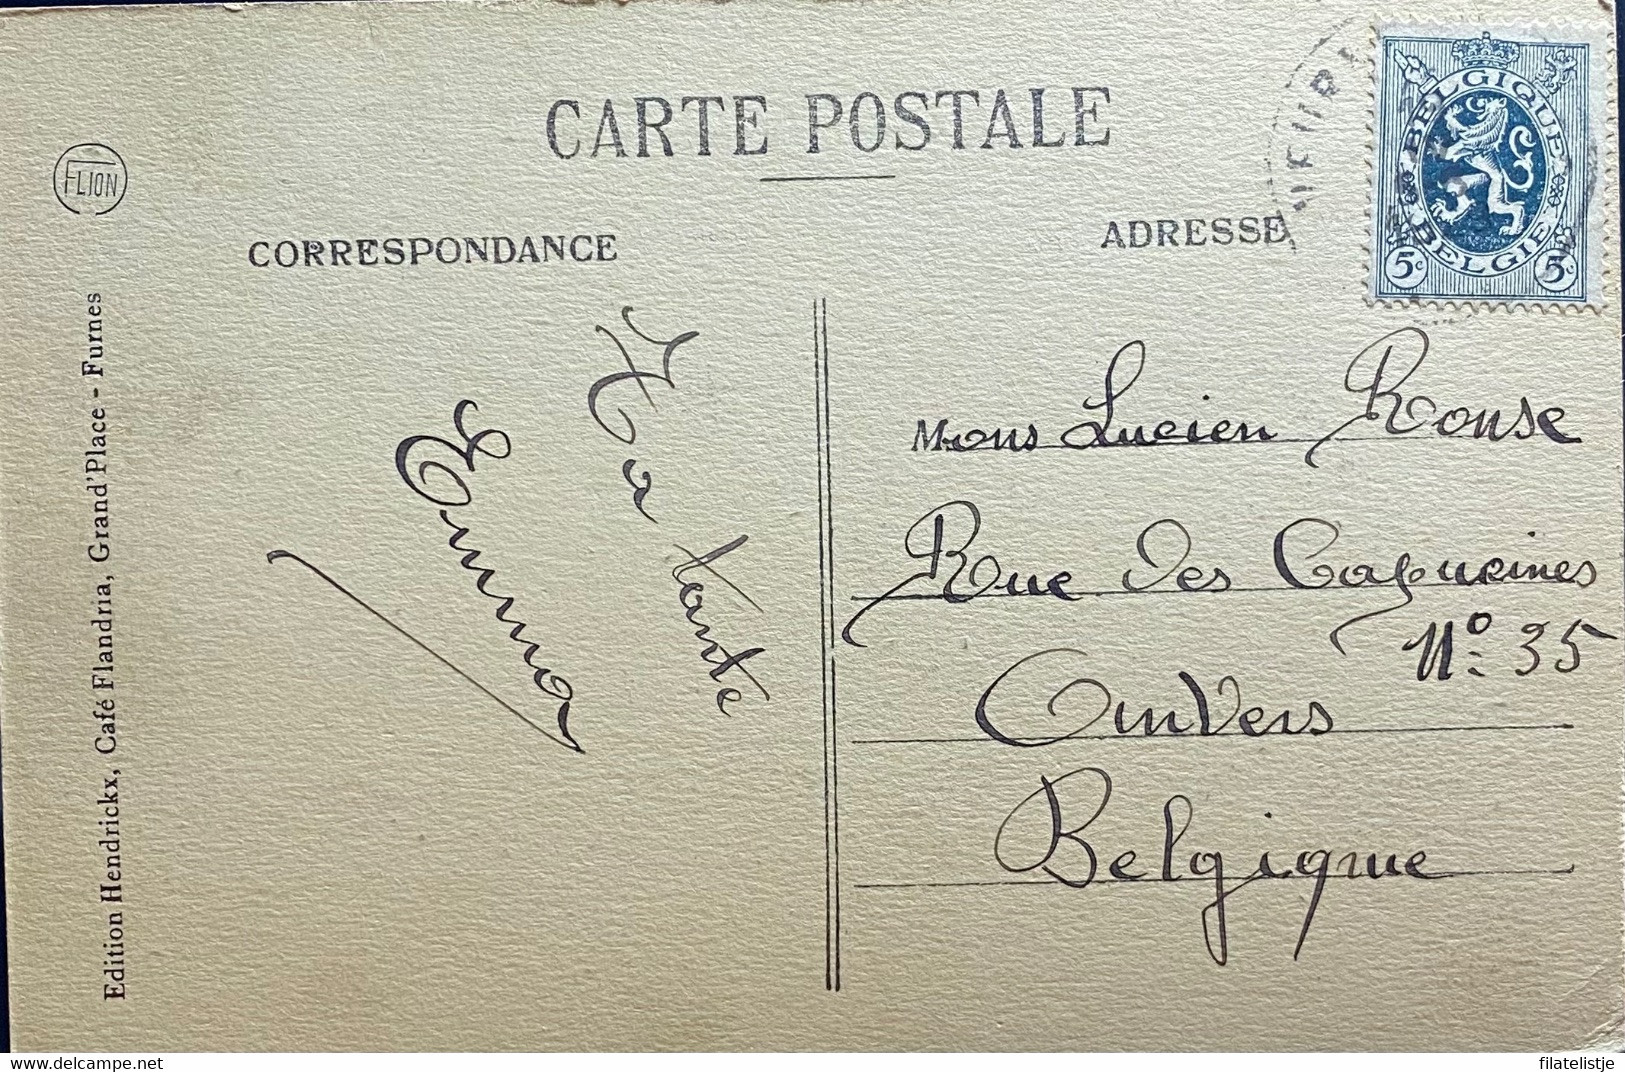 CARTE POSTALE
FLION
CORRESPONDANCE
ADRESSE
BELGIQUE
BELGIE
5c 5c
Edition Hendrickx, Café Flandria, Grand'Place - Furnes
Ta tante
Emma
Mons Lucien Ronse
Rue des Capucines
No 35
Anvers
Belgique
delcampe.net
filatelistje